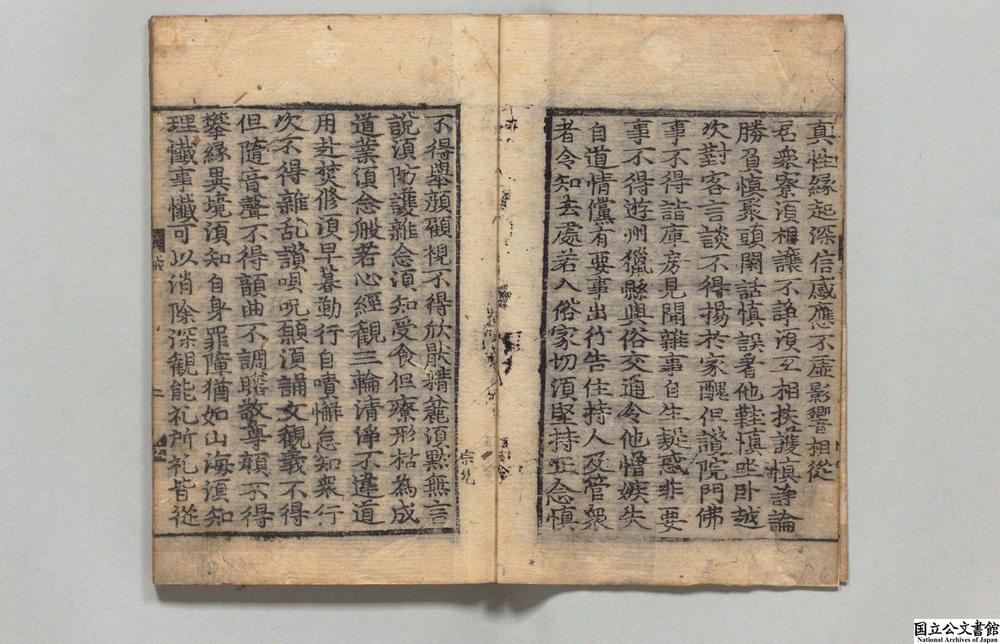 真性緣起深信感應不虛影響相從
居衆寮須相讓不諍須互相扶護慎諍論
勝負慎聚頭閑話慎誤着他鞋慎坐卧越
次對客言談不得揚於家醜但讃院門佛
事不得詣庫房見聞雜事自生疑惑非要
事不得遊州獵縣與俗交通令他憎嫉失
自道情儻有要事出行告住持人及管衆
者令知去處若入俗家切須堅持正念慎
不得舉顔顧視不得欣猒精麁須默無言
說須防護雜念須知受食但療形枯為成
道業須念般若心經觀三輪清淨不違道
用赴焚修須早暮勤行自嘖懈怠知衆行
次不得雜乱讃唄呪願須誦文觀義不得
但隨音聲不得韻曲不調瞻敬尊顔不得
攀緣異境須知自身罪障猶如山海須知
理懺事懺可以消除深觀能礼所礼皆從
誡
二
国立公文書館
National Archives of Japan